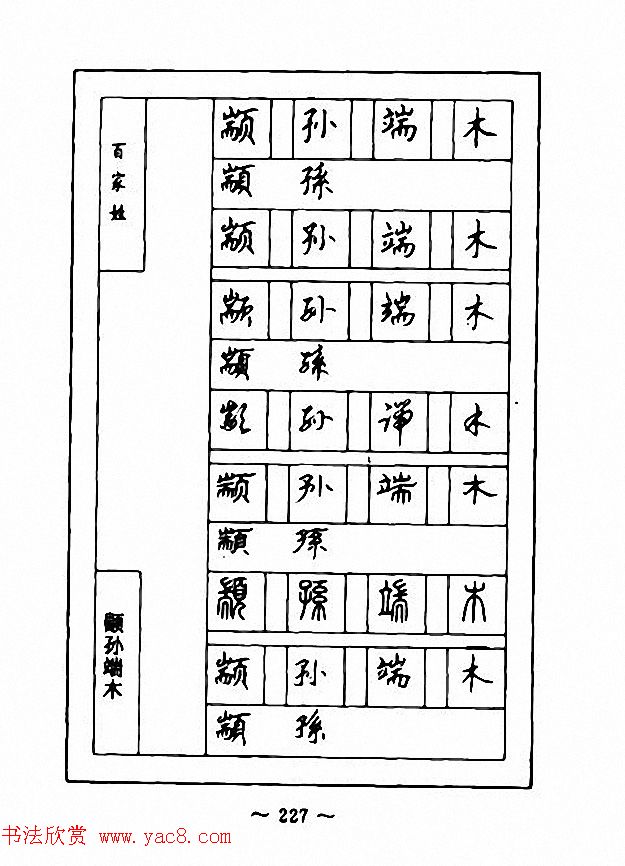 百家姓
颛 孙 端 木
顓 孫
颛 孙 端 木
颛 孙 端 木
顓 孫
颛 孙 端 木
颛 孙 端 木
顓 孫
顓 孫 端 木
颛 孙 端 木
顓 孫
颛孙端木
～ 227 ～
书法欣赏 www.yac8.com